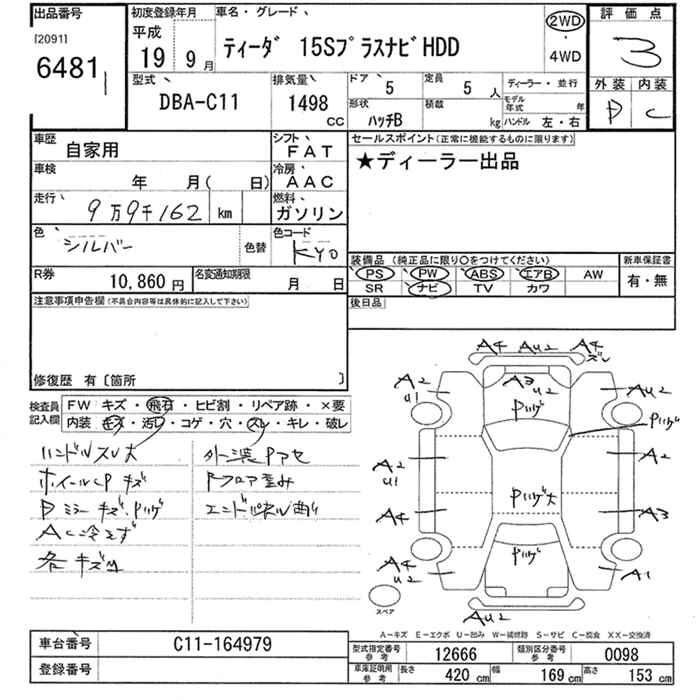 出品番号
[2091]
6481
初度登録年月
平成
19 9月
車名・グレード
ティーダ 15SプラスナビHDD
2WD
・
4WD
評価点
3
外装 内装
D C
型式
DBA-C11
排気量
1498
CC
ドア
5
定員
5 人
形状
ハッチB
積載
kg
ディーラー・並行
モデル年式 年
ハンドル 左・右
車歴
自家用
シフト
FAT
車検
年 月( 日)
冷房
AAC
走行
9万9千162 km
燃料
ガソリン
色
シルバー
色替
色コード
KY0
R券
10,860 円
名変通知期限
月 日
セールスポイント(正常に機能するものに限ります)
★ディーラー出品
装備品 (純正品に限り○をつけてください)
PS PW ABS エアB AW
SR ナビ TV カワ
新車保証書
有・無
後日品
注意事項申告欄(不具合内容等は具体的に記入して下さい)
修復歴 有〔箇所 〕
検査員
記入欄
FW キズ・飛石・ヒビ割・リペア跡・×要
内装 キズ・汚レ・コゲ・穴・スレ・キレ・破レ
ハンドルスレ大
ホイールCP キズ
Dミラーキズ.Pハゲ
AC冷えず
各キズM
外装Pアセ
Rフロア歪み
エンドパネル曲り
A4 AU2 A4
スレ
A2
U1
A3 U2
Pハゲ
AU2
Pハゲ
A2
U1
A2
Pハゲ大
A4
A3
Pハゲ
A4
U2
A1
スペア
AU2
A−キズ E−エクボ U−凹み W−補修跡 S−サビ C−腐食 XX−交換済
車台番号
C11-164979
登録番号
型式指定番号
参考
12666
類別区分番号
参考
0098
車庫証明用
参考
長さ 420 cm 幅 169 cm 高さ 153 cm